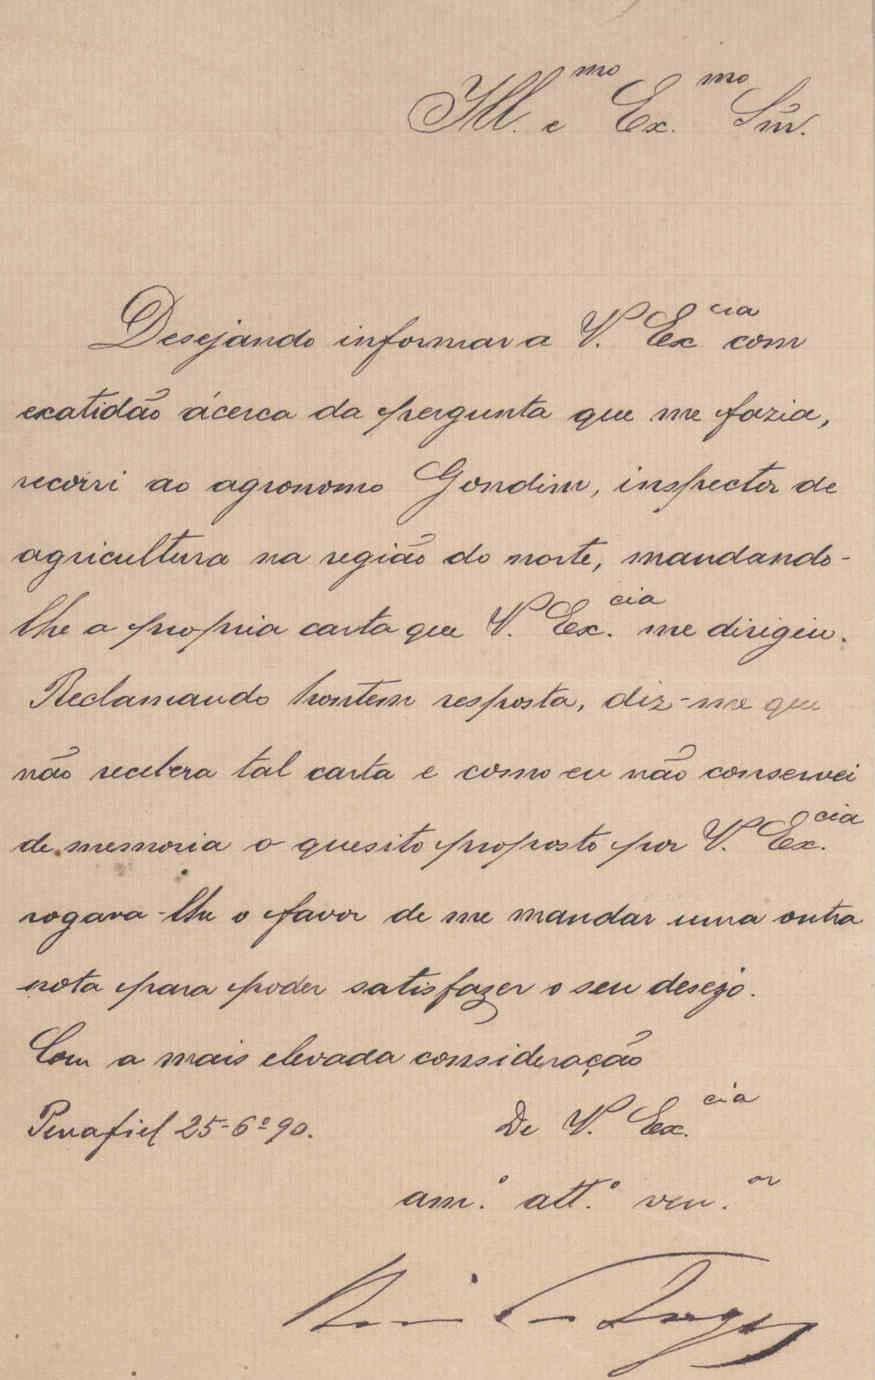 Ill.mo e Ex.mo Snr.
Desejando informar a V. Excia com
exatidão ácerca da pergunta que me fazia,
recorri ao agronomo Gondim, inspector de
agricultura na região do norte, mandando-
lhe a propria carta que V. Ex.cia me dirigiu.
Reclamando hontem resposta, diz-me que
não recebera tal carta e como eu não conservei
de memoria o quesito proposto por V. Ex.cia
rogava-lhe o favor de me mandar uma outra
nota para poder satisfazer o seu desejo.
Com a mais elevada consideração
Penafiel 25-6º-90.
De V. Ex.cia
am.º att.º ven.or